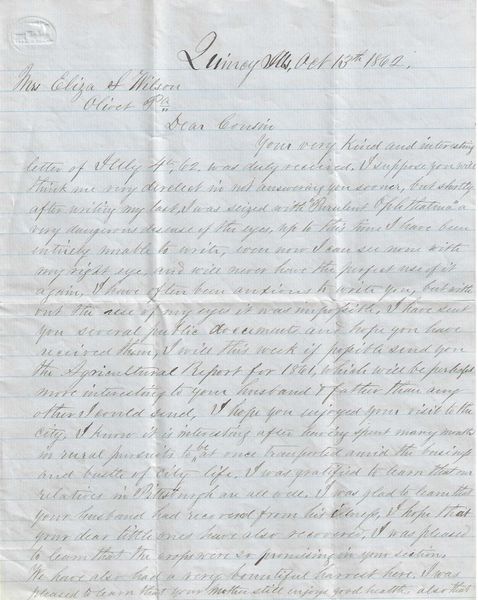 Quincy Ills, Oct 13th 1862.
Mrs Eliza S Wilson
Olivet Pa
Dear Cousin
Your very kind and interesting
letter of July 4th, 62, was duly received. I suppose you will
think me very direlect in not answering you sooner, but shortly
after writing my last, I was seized with "Purulent Opthalmia" a
very dangerous disease of the eyes, up to this time I have been
entirely unable to write, even now I can see none with
my right eye, and will never have the perfect use of it
again, I have often been anxious to write you, but with
out the use of my eyes it was impossible, I have sent
you several public documents and hope you have
received them, I will this week if possible send you
the Agricultural Report for 1861, which will be perhaps
more interesting to your husband & father than any
other I could send, I hope you enjoyed your visit to the
city, I know it is interesting after having spent many months
in rural pursuits to be at once transported amid the business
and bustle of city life. I was gratified to learn that our
relatives in Pittsburgh are all well. I was glad to learn that
your husband had recovered from his illness, I hope that
your dear little ones have also recovered, I was pleased
to learn that the crops were so promising in your section.
We have also had a very bountiful harvest here. I was
pleased to learn that your mother still enjoys good health, also that